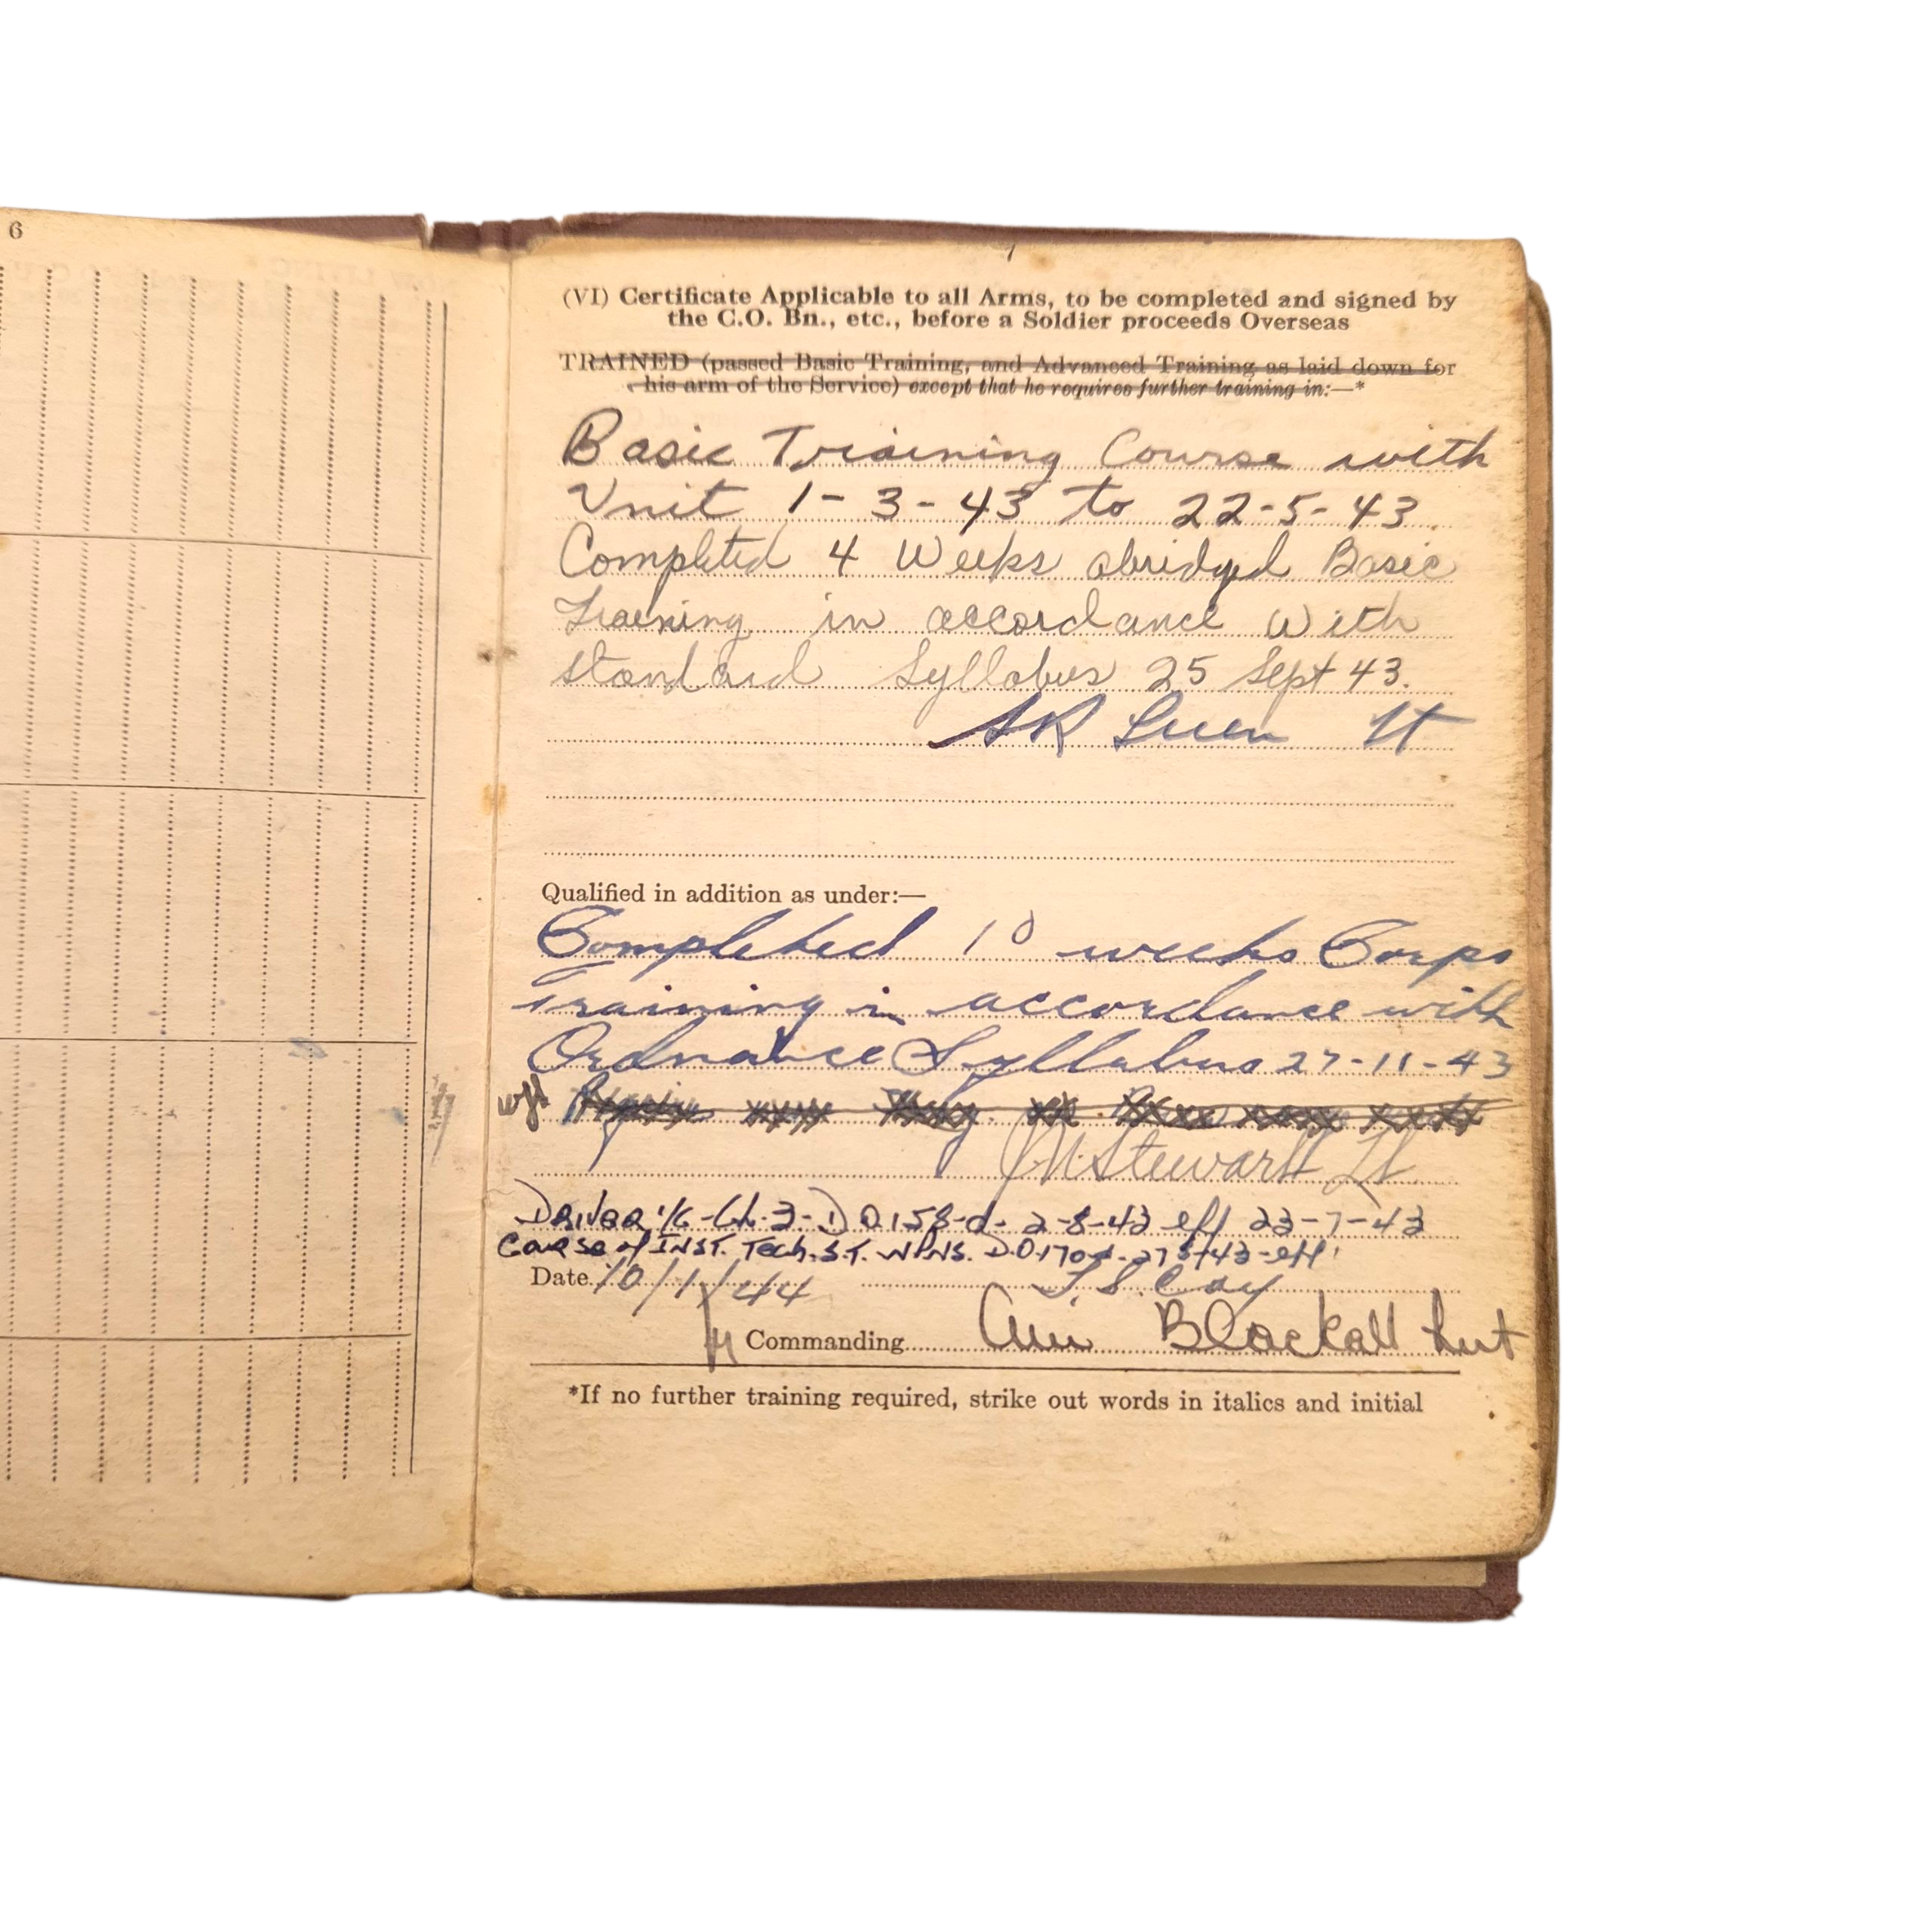 6
(VI) Certificate Applicable to all Arms, to be completed and signed by
the C.O. Bn., etc., before a Soldier proceeds Overseas
TRAINED (passed Basic Training, and Advanced Training as laid down for
his arm of the Service) except that he requires further training in:—*
Basic Training Course with
Unit 1-3-43 to 22-5-43.
Completed 4 Weeks abridged Basic
Training in accordance With
Standard Syllabus 25 Sept 43.
Lt
Qualified in addition as under:—
Completed 10 weeks Corps
Training in accordance with
Ordnance Syllabus 27-11-43
Stewart Lt
Driver i/c - Cl. 3 - D.O. 158-d- 2-8-43 eff 23-7-43
Course of INST. Tech. S.T. WPNS. D.O. 170
Date 10/1/44
Commanding Blackall Lieut
*If no further training required, strike out words in italics and initial